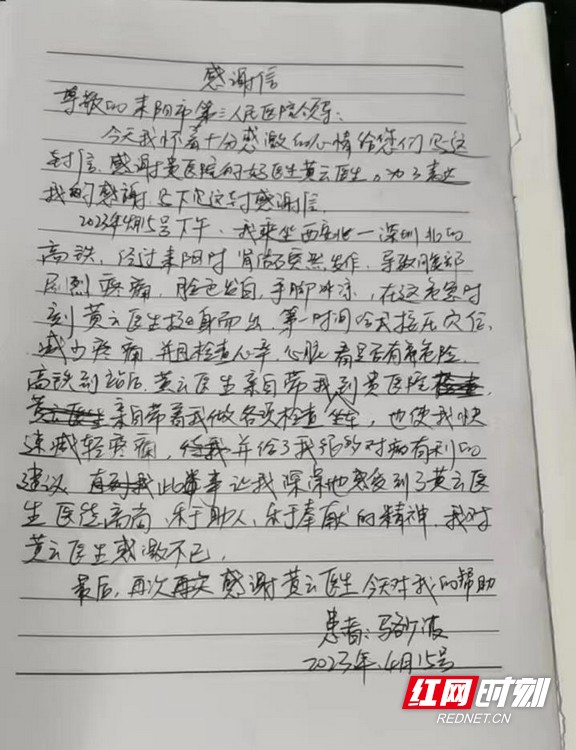 感谢信
尊敬的耒阳市第三人民医院领导:
今天我怀着十分感激的心情给您们写这
封信。感谢贵医院的好医生黄云医生。为了表达
我的感谢,写下这封感谢信。
2023年4月15号下午,我乘坐西安北—深圳北的
高铁,经过耒阳时肾结石突然发作,导致腹部
剧烈疼痛,脸色发白,手脚冰凉,在这危急时
刻黄云医生挺身而出,第一时间给我按压穴位,
减少疼痛,并且检查心率,心脏看是否有危险,
高铁到站后,黄云医生亲自带我到贵医院检查
黄云医生亲自带着我做各项检查,也使我快
速减轻疼痛,给我并给了我很多对病有利的
建议,此事让我深深地感受到了黄云医
生医德高尚,乐于助人,乐于奉献的精神,我对
黄云医生感激不已。
最后,再次感谢黄云医生今天对我的帮助
患者:
2023年4月15号
红网时刻
REDNET.CN